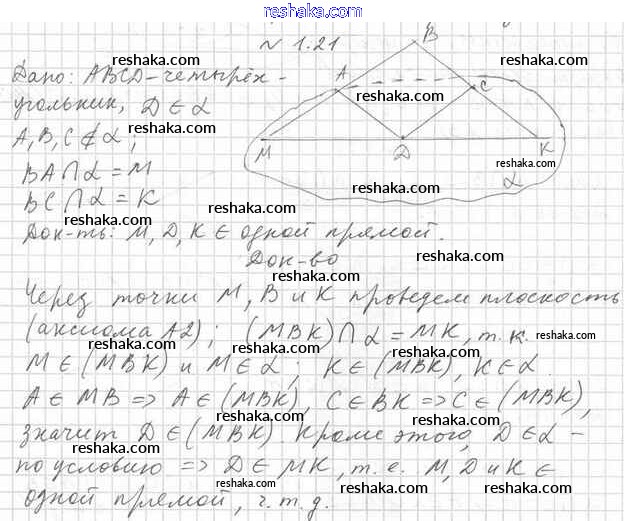 reshaka.com
№ 1.21
Дано: ABCD-четырёх-
угольник, D ∈ α
A, B, C ∉ α;
BA ∩ α = M
BC ∩ α = K
Док-ть: M, D, K ∈ одной прямой.
B
A
C
M
D
K
α
Док-во
Через точки M, B и K проведем плоскость
(аксиома A2); (MBK) ∩ α = MK, т. к.
M ∈ (MBK) и M ∈ α; K ∈ (MBK), K ∈ α.
A ∈ MB => A ∈ (MBK), C ∈ BK => C ∈ (MBK),
значит D ∈ (MBK). Кроме этого, D ∈ α -
по условию => D ∈ MK, т.е. M, D и K ∈
одной прямой, ч.т.д.
reshaka.com
reshaka.com
reshaka.com
reshaka.com
reshaka.com
reshaka.com
reshaka.com
reshaka.com
reshaka.com
reshaka.com
reshaka.com
reshaka.com
reshaka.com
reshaka.com
reshaka.com
reshaka.com
reshaka.com
reshaka.com
reshaka.com
reshaka.com
reshaka.com
reshaka.com